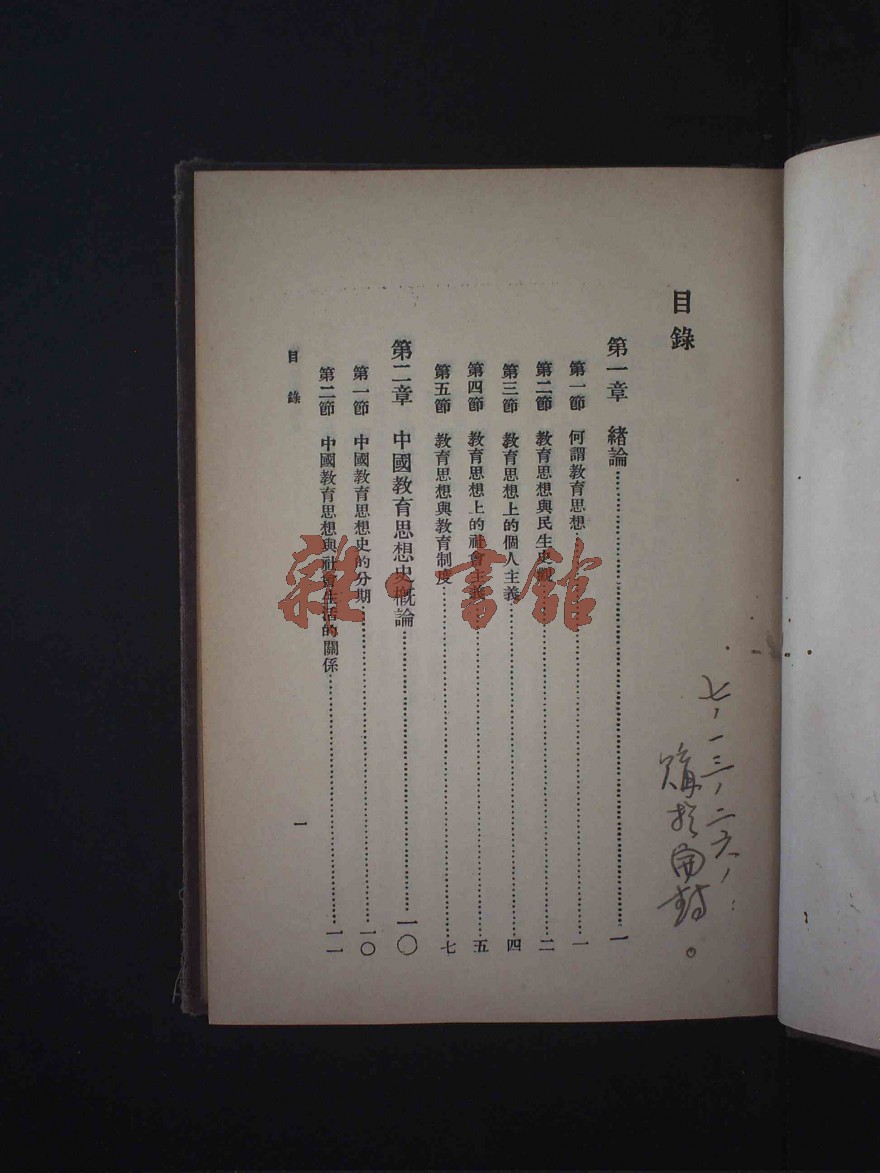 目錄
第一章 緒論……一
第一節 何謂教育思想……一
第二節 教育思想與民生史觀……二
第三節 教育思想上的個人主義……四
第四節 教育思想上的社會主義……五
第五節 教育思想與教育制度……七
第二章 中國教育思想史概論……一〇
第一節 中國教育思想史的分期……一〇
第二節 中國教育思想與社會生活的關係……一一
目錄
一
七,一三,二六,
購於開封。
雜·書館